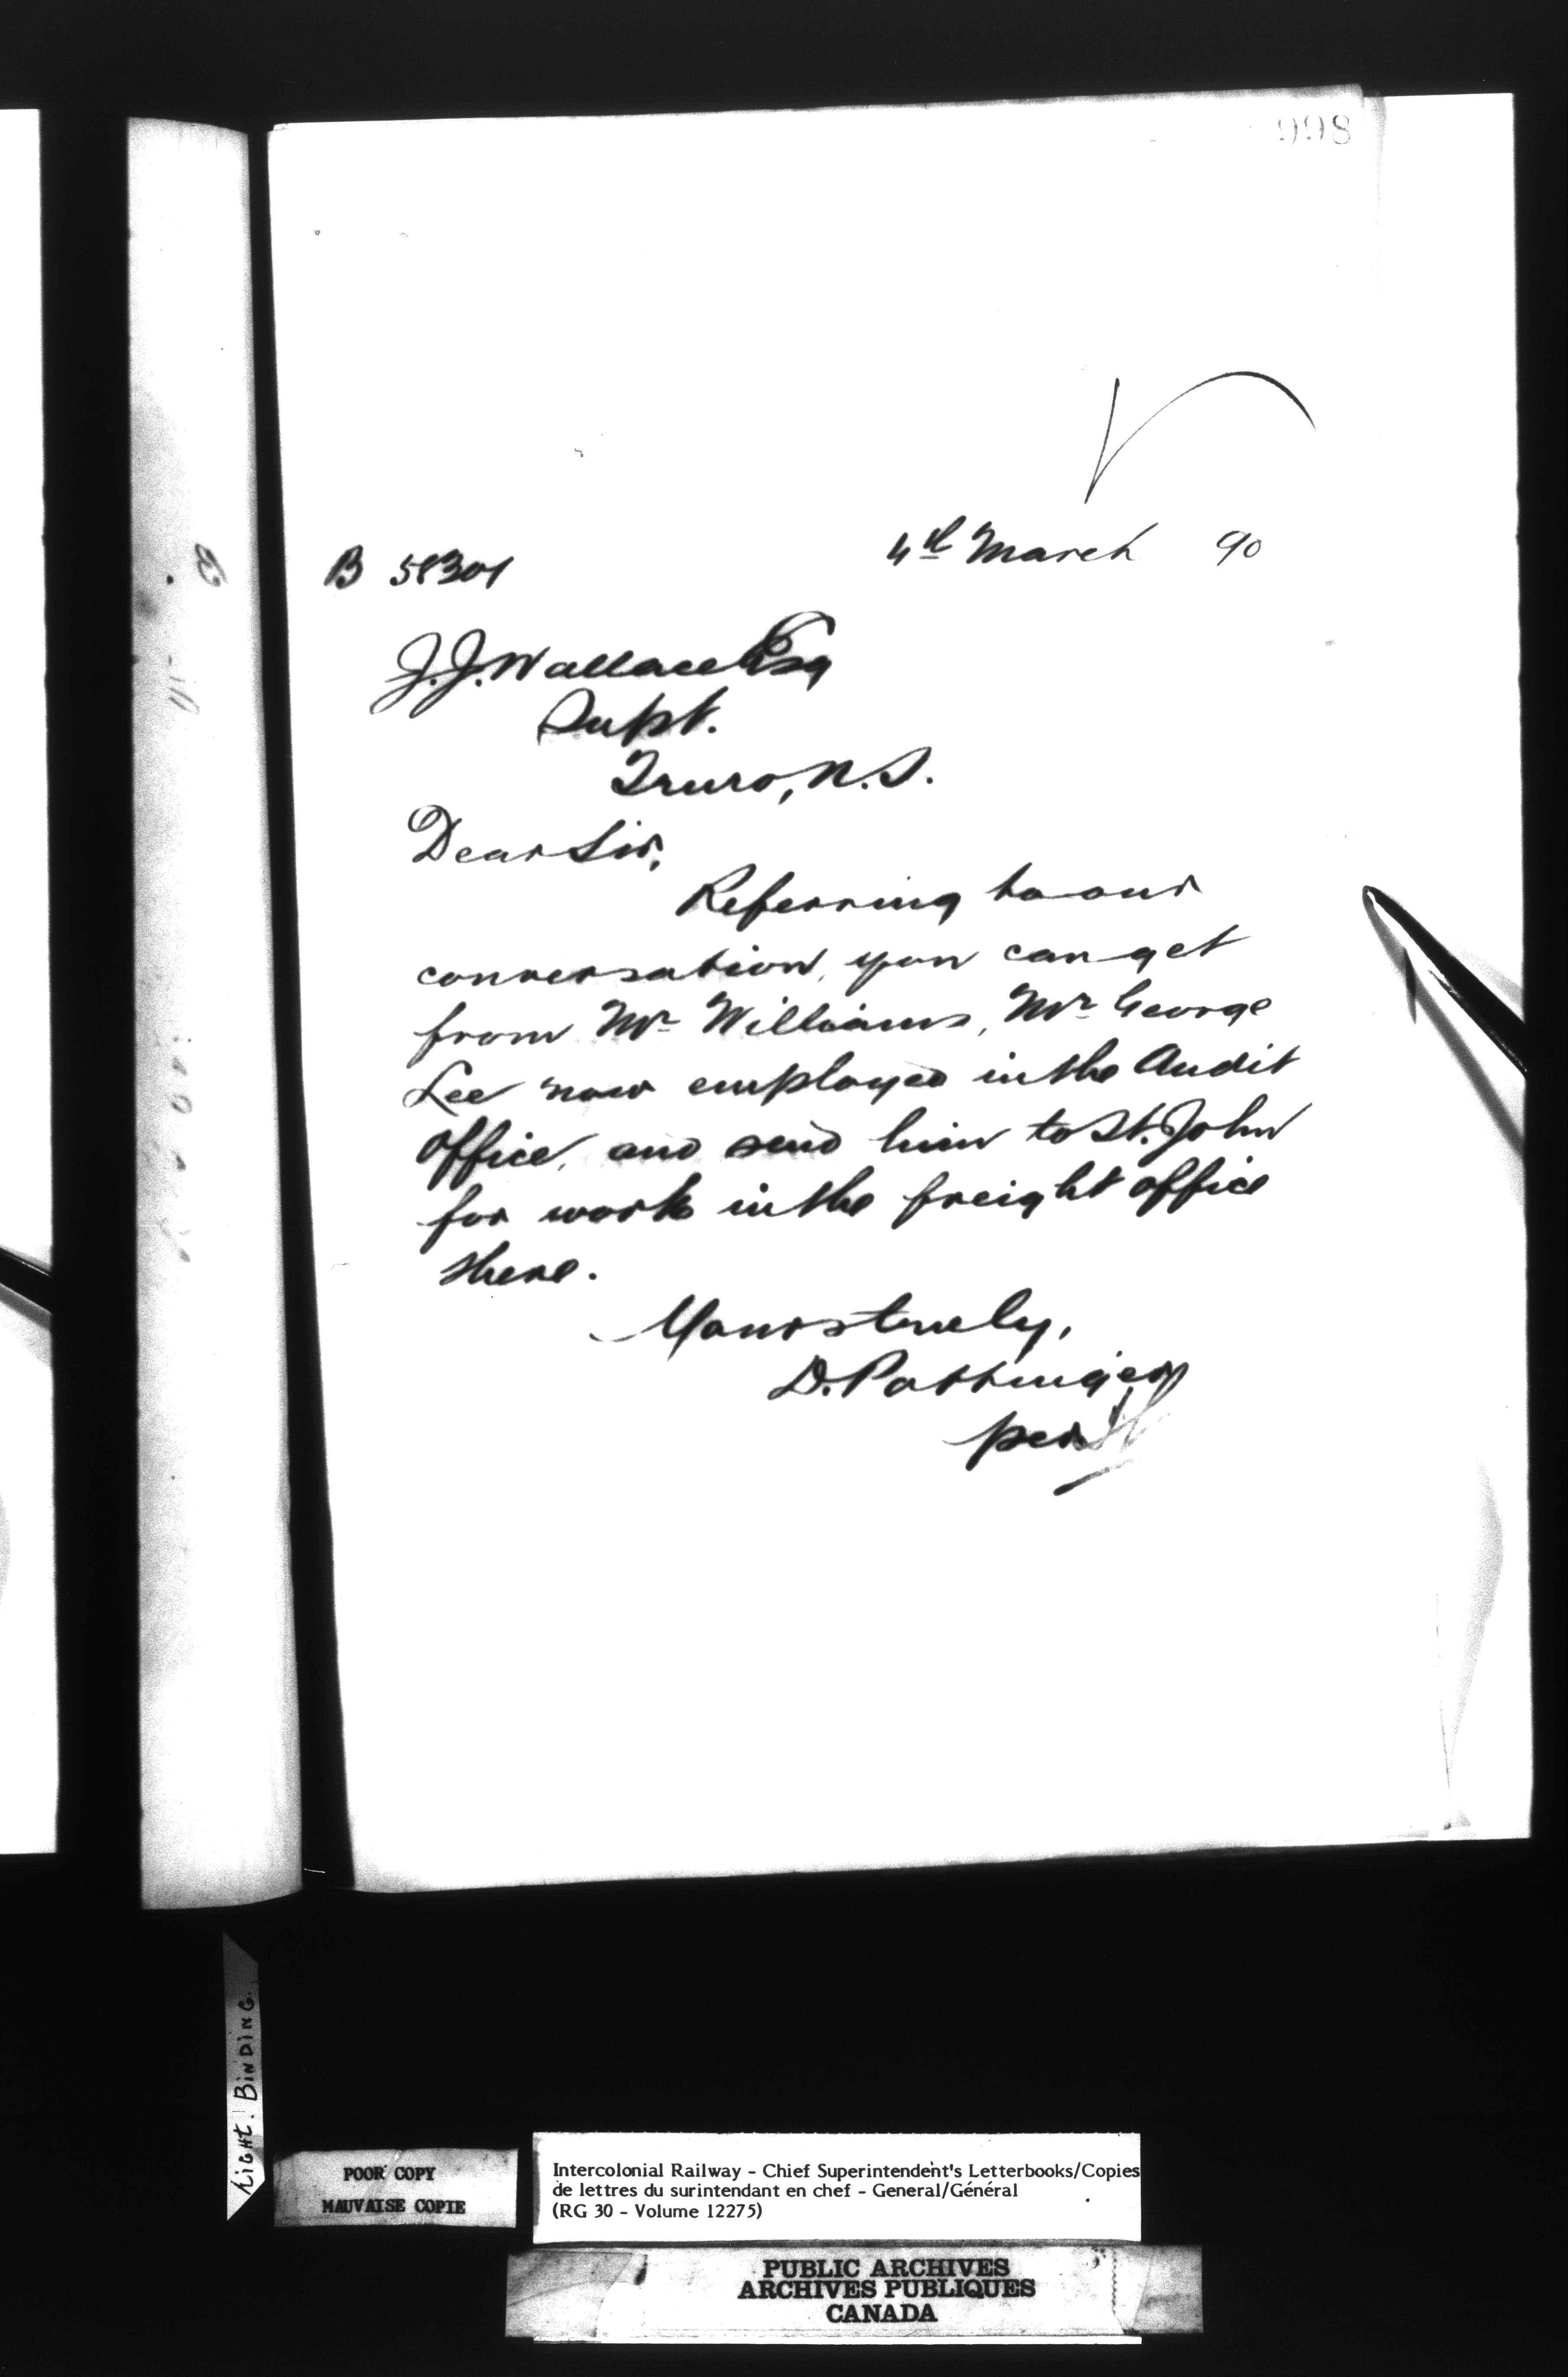 998
4th March 90
B 58301
J.J. Wallace Esq
Supt.
Truro, N.S.
Dear Sir,
Referring to our
conversation, you can get
from Mr Williams, Mr George
Lee now employed in the Audit
office, and send him to St. John
for work in the freight office
there.
Yours truly,
D. Pottinger
per
TIGHT. BINDING.
POOR COPY
MAUVAISE COPIE
Intercolonial Railway - Chief Superintendent's Letterbooks/Copies
de lettres du surintendant en chef - General/Général
(RG 30 - Volume 12275)
PUBLIC ARCHIVES
ARCHIVES PUBLIQUES
CANADA